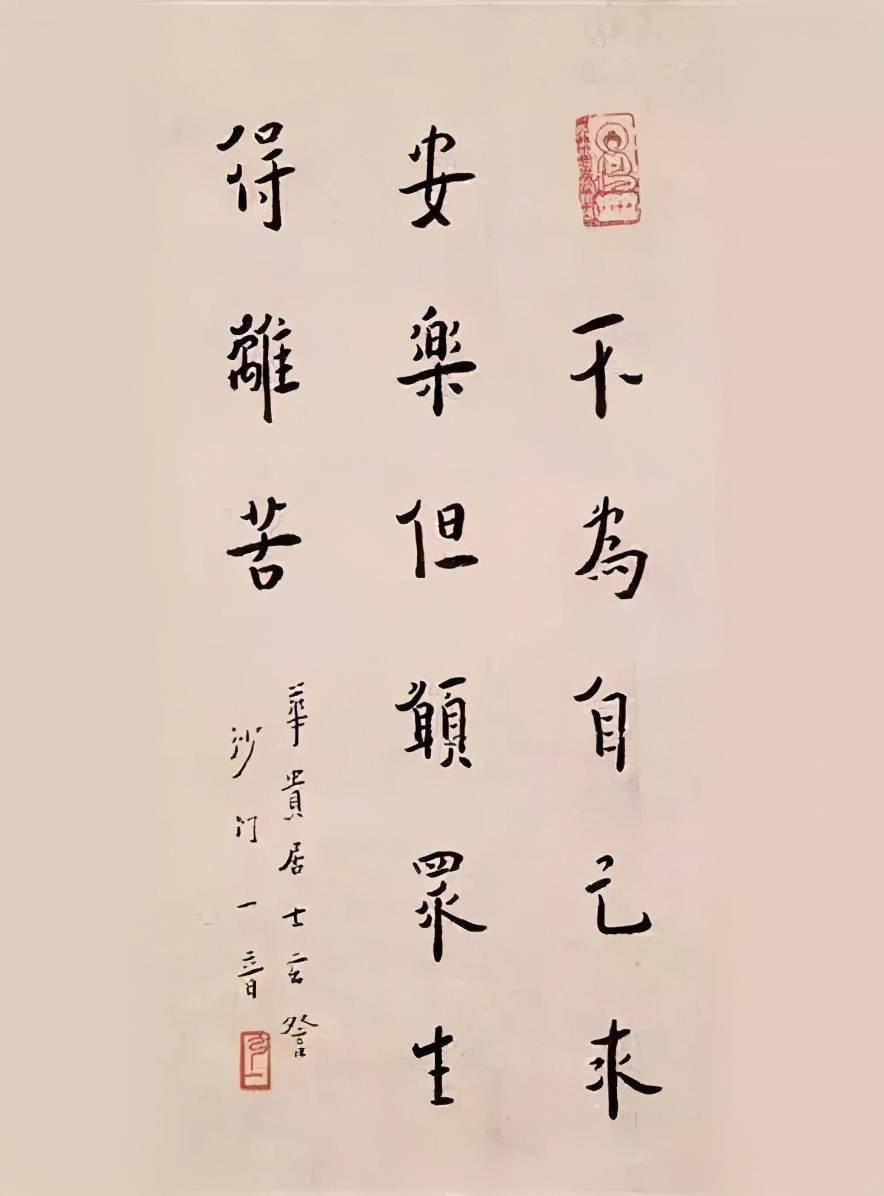 不為自己求
安樂但願眾生
得離苦
華貴居士玄詧
沙門一音
弘一